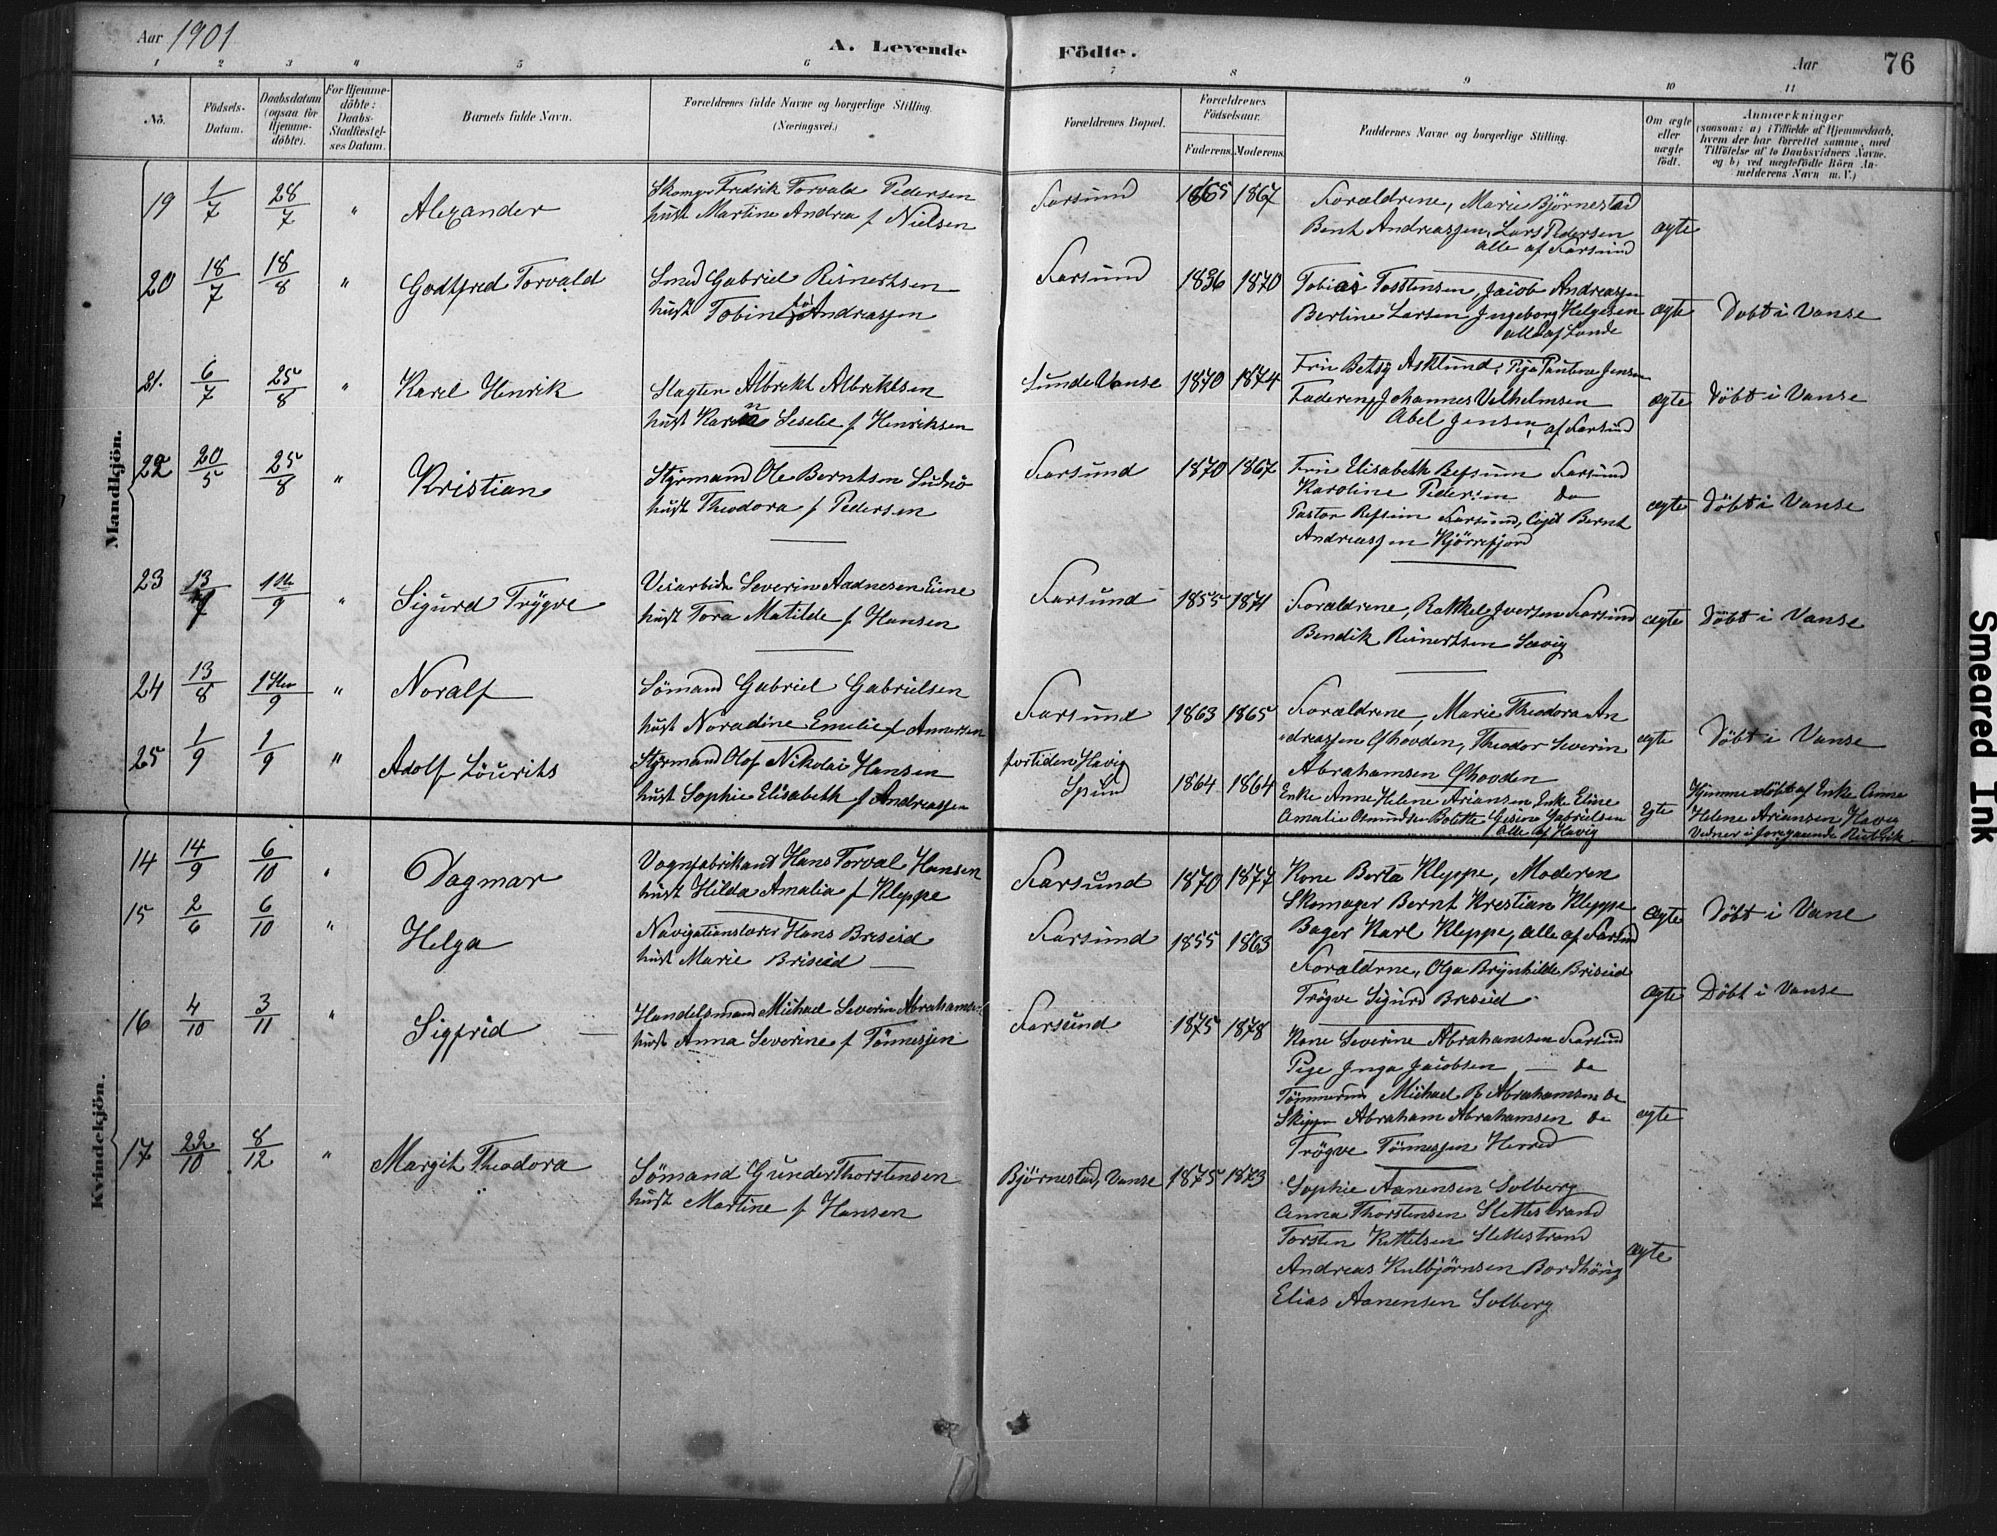 Aar 1901
A. Levende Födte.
Aar 76
1 2 3 4 5 6 7 8 9 10 11
No.
Födsels-Datum.
Daabsdatum (ogsaa for Hjemme-döbte).
For Hjemme-döbte: Daabs-Stadfæstel-ses Datum.
Barnets fulde Navn.
Forældrenes fulde Navne og borgerlige Stilling. (Næringsvei.)
Forældrenes Bopæl.
Forældrenes Födselsaar.
Faderens. Moderens.
Faddernes Navne og borgerlige Stilling.
Om ægte eller uægte födt.
Anmærkninger (saasom: a) i Tilfælde af Hjemmedaab, hvem der har forrettet samme, med Tilföielse af to Daabsvidners Navne, og b) ved uægtefödte Börn Anmelderens Navn m. V.)
Mandkjön.
19 1/7 28/7 " Alexander
Skomger Fredrik Torvald Pedersen
hust Martine Andrea f Nielsen
Farsund 1865 1867
Forældrene, Marie Bjørnestad
Bent Andreassen, Lars Pedersen
alle af Farsund
ægte
20 18/7 18/8 " Godtfred Torvald
Smed Gabriel Reinertsen
hust Tobine f Andreassen
Farsund 1836 1870
Tobias Tosstensen, Jacob Andreassen
Berline Larsen Ingeborg Helgesen
alle af Lunde
ægte Døbt i Vanse
21. 6/7 25/8 " Karel Henrik
Slagter Albrekt Albrektsen
hust Karen Leselie f Henriksen
Sunde Vanse 1870 1874
Fru Betsy Asklund, Pige Pauline Jensen
Faderen, Johannes Velhelmsen
Abel Jensen, af Farsund
ægte Døbt i Vanse
22 20/5 25/8 " Kristian
Styrmand Ole Berntsen Ludnø
hust Theodora f Pedersen
Farsund 1870 1867
Fru Elisabeth Refsum Farsund
Karoline Pedersen do
Pastor Refsum Farsund, Bernt
Andreassen Kjörrefjord
ægte Döbt i Vanse
23 13/7 1ste/9 " Sigurd Trygve
Veiarbeider Severin Aadnesen Eime
hust Tora Matilde f Hansen
Farsund 1855 1871
Forældrene, Rakkel Iversen Farsund
Bendik Reinertsen Lævig
ægte Döbt i Vanse
24 13/8 1ste/9 " Noralf
Sömand Gabriel Gabrielsen
hust Noradine Emelie f Annersen
Farsund 1863 1865
Forældrene, Marie Theodora An
dreassen Ghovden, Theodor Severin
Abrahamsen Ghovden
ægte Döbt i Vanse
25 1/9 1/9 " Adolf Löurits
Styrmand Olof Nikolai Hansen
hust Sophie Elisabeth f Andreassen
fortiden Havig
Spind
1864 1864
Enke Anne Helene Ariansen Enke Eline
Amalie Osmundsen Bolette Gesine Gabrielsen
Alle af Havig
Egte
Hjemmedöbt af Enke Anne
Helene Ariansen, Havig
Vidner i foregaaende Rubrik
Kvindekjön.
14 14/9 6/10 " Dagmar
Vognfabrikant Hans Torval Hansen
hust Hilda Amalia f Kleppe
Farsund 1870 1877
Kone Berta Kleppe, Moderen
Skomager Bernt Krestian Kleppe
Bager Karl Kleppe, alle af Farsund
ægte Döbt i Vane
15 2/6 6/10 " Helga
Navigationslærer Hans Briseid
hust Marie Briseid
Farsund 1855 1863
Forældrne, Olga Brynhilde Briseid
Trögve Sigurd Breseid
ægte Döbt i Vanse
16 4/10 3/11 " Sigfrid
Handelsmand Michael Severin Abrahamsen
hust Anna Severine f Tönnesjen
Farsund 1875 1878
Kone Severine Abrahamsen Farsund
Pige Inga Jacobsen — do
Tömmermand Michael B Abrahamsen do
Skipper Abraham Abrahamsen do
Trögve Tönnessen Herred
ægte
17 22/10 8/12 " Margit Theodora
Sömand Gunder Thorstensen
hust Martine f Hansen
Björnestad, Vanse 1875 1873
Sophie Aanensen Solberg
Anna Thorstensen Slettestrand
Torsten Kettelsen Slettestrand
Andreas Kulbjörnsen Bordhöug
Elias Aanensen Solberg
ægte
Smeared Ink